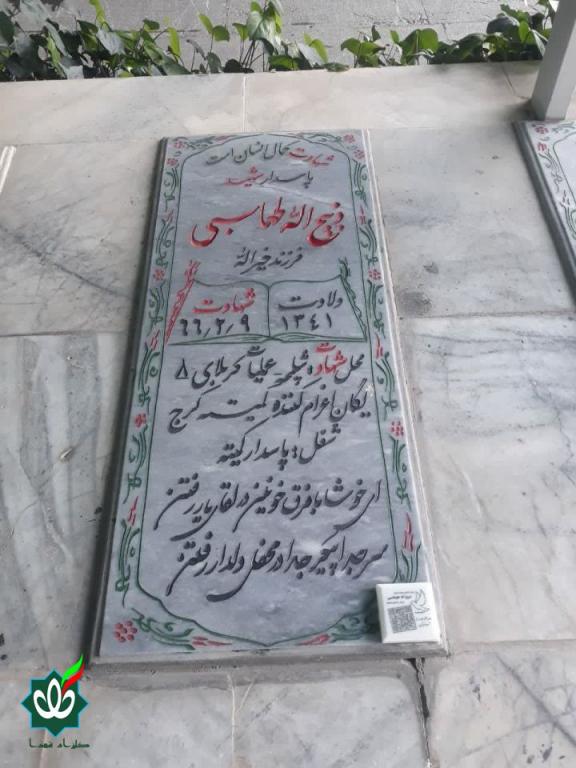 شهادت کمال انسان است
پاسدار شهید
ذبیح الله طهماسبی
فرزند خیرالله
ولادت
۱۳۴۱
شهادت
۶۶/۲/۹
محل شهادت: شلمچه عملیات کربلای ۸
یگان اعزام کننده کمیته کرج
شغل: پاسدار کمیته
ای خوشا با فرق خونین در لقای یار رفتن
سر جدا پیکر جدا در محفل دلدار رفتن
گلزار شهدا